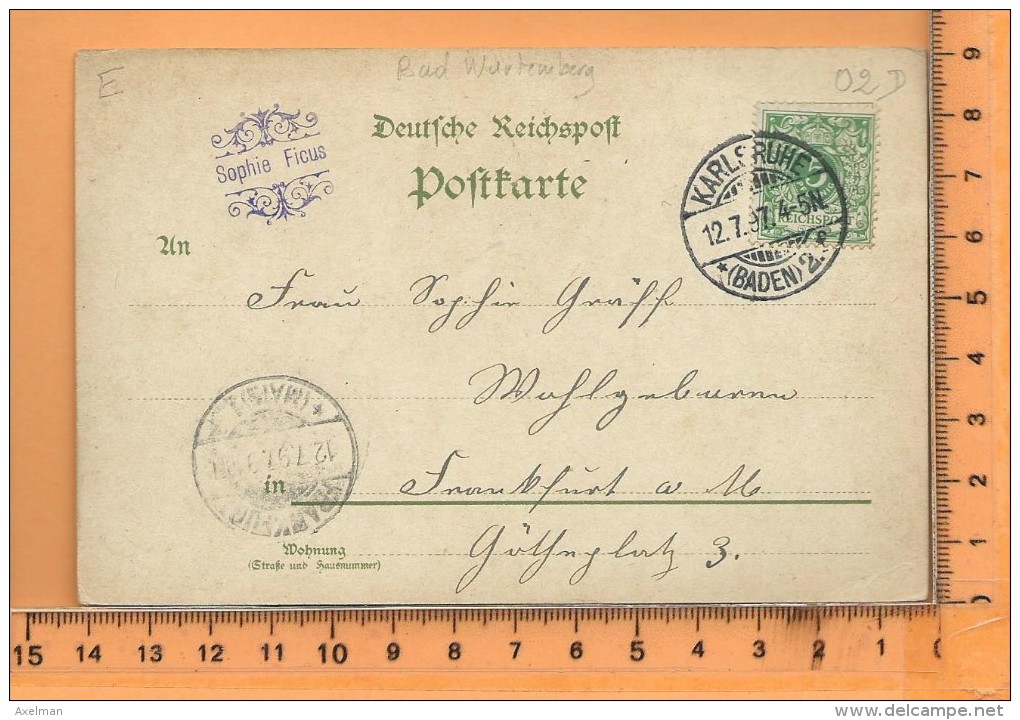 E
Bad Wurtemberg
02D
Sophie Ficus
Deutsche Reichspost
Postkarte
KARLSRUHE
12.7.97. 4-5N.
(BADEN) 2.
REICHSPOST
An
Frau Sophie Gräff
Wohlgeboren
(MAIN)
12.7.97.
FRANKFURT
in Frankfurt a M
Wohnung
(Straße und Hausnummer)
Götheplatz 3.
9
8
7
6
5
4
3
2
1
0
15 14 13 12 11 10 9 8 7 6 5 4 3 2 1
Axelman
www.delcampe.net